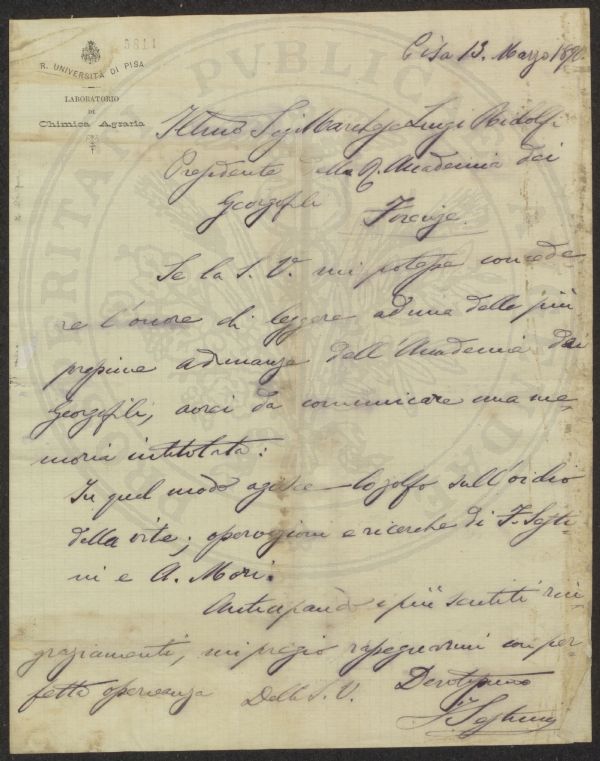 5811
R. UNIVERSITÀ DI PISA
LABORATORIO
DI
Chimica Agraria
Pisa 13. Marzo 1890.
Illmo Sig. Marchese Luigi Ridolfi
Presidente della R. Accademia dei
Georgofili Firenze.
Se la S. V. mi potesse concede
re l'onore di leggere ad una delle più
prossime adunanze dell'Accademia dei
Georgofili, avrei da comunicare una me-
moria intitolata:
In qual modo agisce lo zolfo sull'oidio
della vite; osservazioni e ricerche di F. Sesti-
ni e A. Mori.
Anticipando i più sentiti rin-
graziamenti, mi pregio rassegnarmi con per-
fetta osservanza Della S. V. Devotissimo
F. Sestini